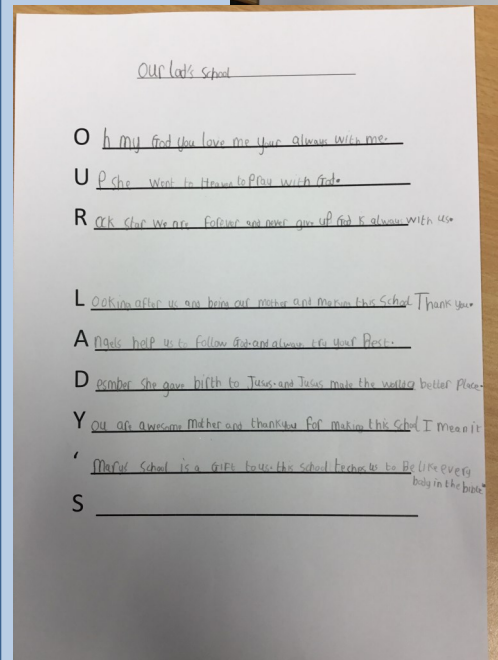 Our lad's School
Oh my God you love me your always with me.
UP she went to Heaven to Pray with God.
Rock star we are forever and never give up God is always with us.
Looking after us and being our mother and making this School Thank you.
Angels help us to follow God. and always try your Best.
Desmber she gave birth to Jusus. and Jusus made the world a better Place.
You are awesome mother and thankyou for making this school I mean it
' Marys School is a GIFT to us. this school teches us to Be like every
body in the bible.
S